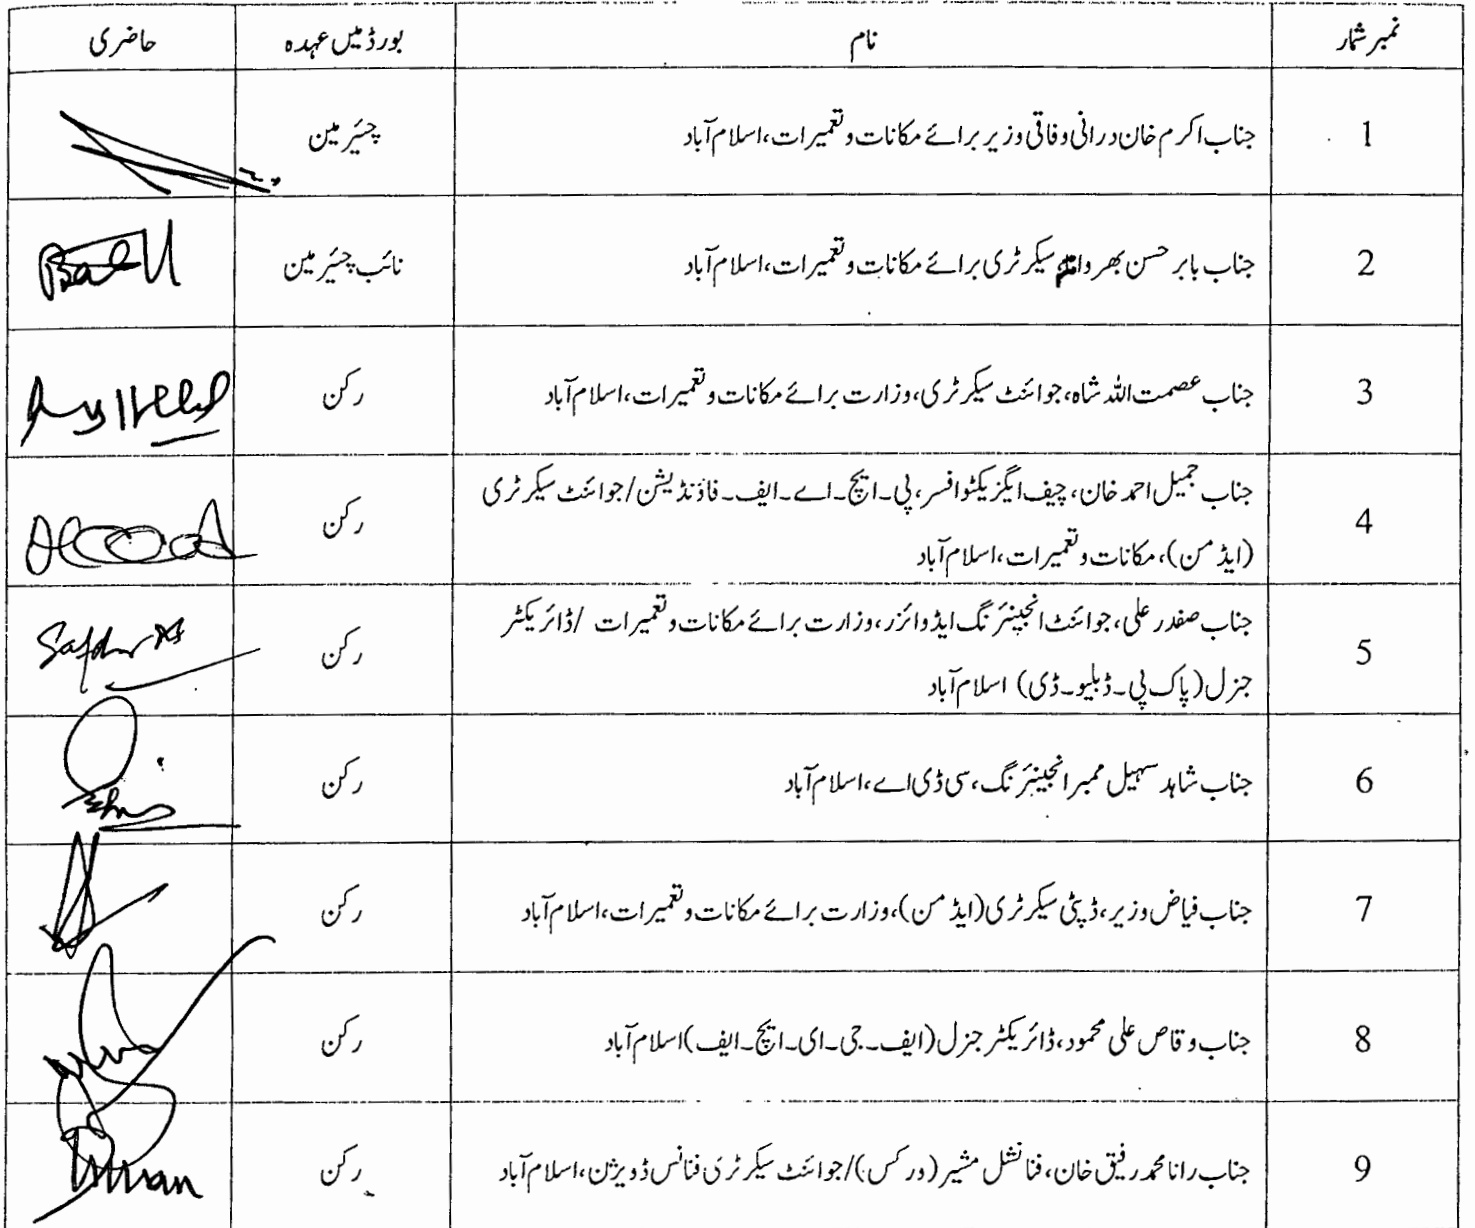 نمبر شمار نام بورڈ میں عہدہ حاضری
1 جناب اکرم خان درانی وفاقی وزیر برائے مکانات و تعمیرات، اسلام آباد چیئرمین
2 جناب بابر حسن بھروانہ سیکرٹری برائے مکانات و تعمیرات، اسلام آباد نائب چیئرمین
3 جناب عصمت اللہ شاہ، جوائنٹ سیکرٹری، وزارت برائے مکانات و تعمیرات، اسلام آباد رکن
4 جناب جمیل احمد خان، چیف ایگزیکٹو افسر، پی۔ایچ۔اے۔ایف۔فاؤنڈیشن/جوائنٹ سیکرٹری رکن
(ایڈمن)، مکانات و تعمیرات، اسلام آباد
5 جناب صفدر علی، جوائنٹ انجینئرنگ ایڈوائزر، وزارت برائے مکانات و تعمیرات /ڈائریکٹر رکن Safdar
جنرل (پاک پی۔ڈبلیو۔ڈی) اسلام آباد
6 جناب شاہد سہیل ممبر انجینئرنگ، سی ڈی اے، اسلام آباد رکن
7 جناب فیاض وزیر، ڈپٹی سیکرٹری (ایڈمن)، وزارت برائے مکانات و تعمیرات، اسلام آباد رکن
8 جناب وقاص علی محمود، ڈائریکٹر جنرل (ایف۔جی۔ای۔ایچ۔ایف) اسلام آباد رکن
9 جناب رانا محمد رفیق خان، فنانشل مشیر (ورکس)/جوائنٹ سیکرٹری فنانس ڈویژن، اسلام آباد رکن